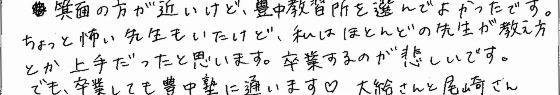 箕面の方が近いけど、豊中教習所を選んでよかったです。
ちょっと怖い先生もいたけど、私はほとんどの先生が教え方
とか上手だったと思います。卒業するのが悲しいです。
でも、卒業しても豊中塾に通います♡ 大給さんと尾﨑さん